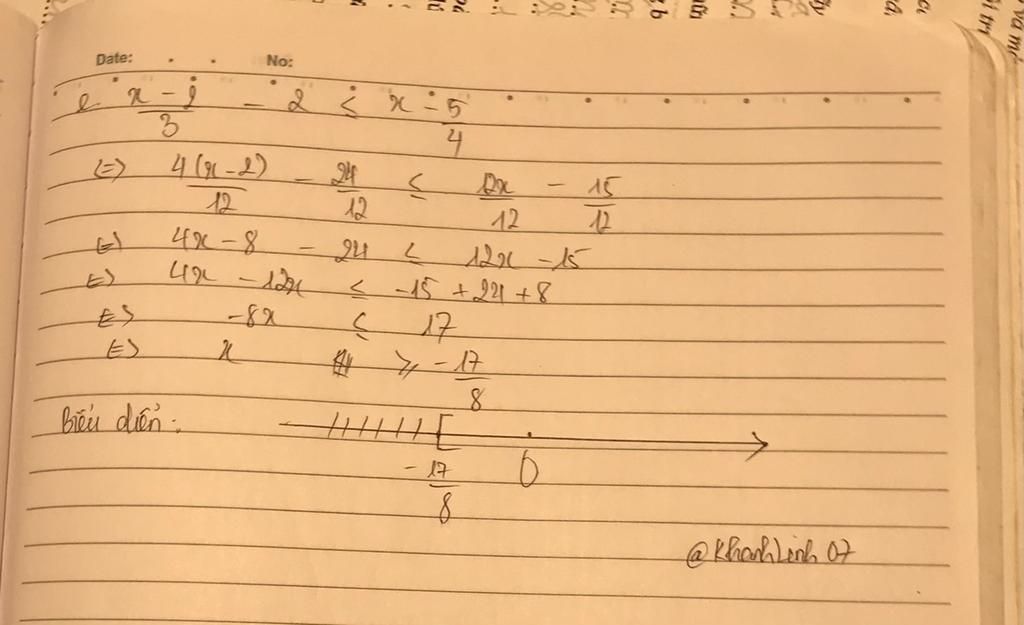 Date: No:
e x-2/3 - 2 ≤ x - 5/4
<=> 4(x-2)/12 - 24/12 ≤ 12x/12 - 15/12
<=> 4x - 8 - 24 ≤ 12x - 15
<=> 4x - 12x ≤ -15 + 24 + 8
<=> -8x ≤ 17
<=> x ≥ -17/8
Biểu diễn:
-17/8 0
@KhanhLinh07